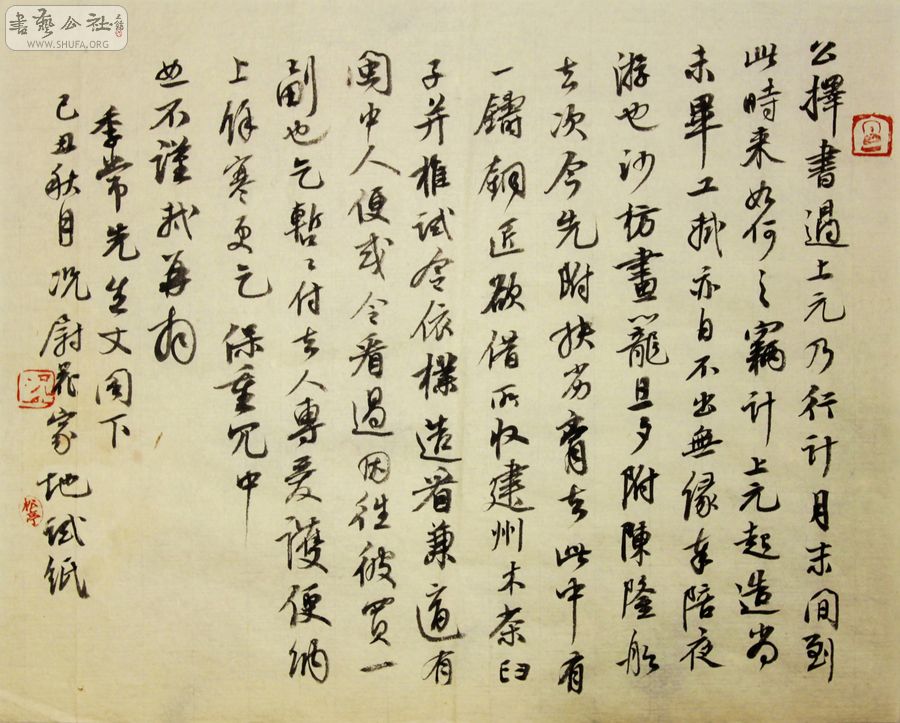 書藝公社
WWW.SHUFA.ORG
公擇書過上元乃行計月末間到
此時来如何〻竊計上元起造尚
未畢工軾亦自不出無緣奉陪夜
游也沙枋畫籠旦夕附陳隆船
去次今先附扶劣膏去此中有
一鑄銅匠欲借所收建州木茶臼
子并椎試令依樣造看兼適有
閩中人便或令看過因往彼買一
副也乞暫〻付去人專愛護便納
上餘寒更乞保重冗中
恕不謹軾再拜
季常先生丈閣下
己丑秋月況尉家地試紙